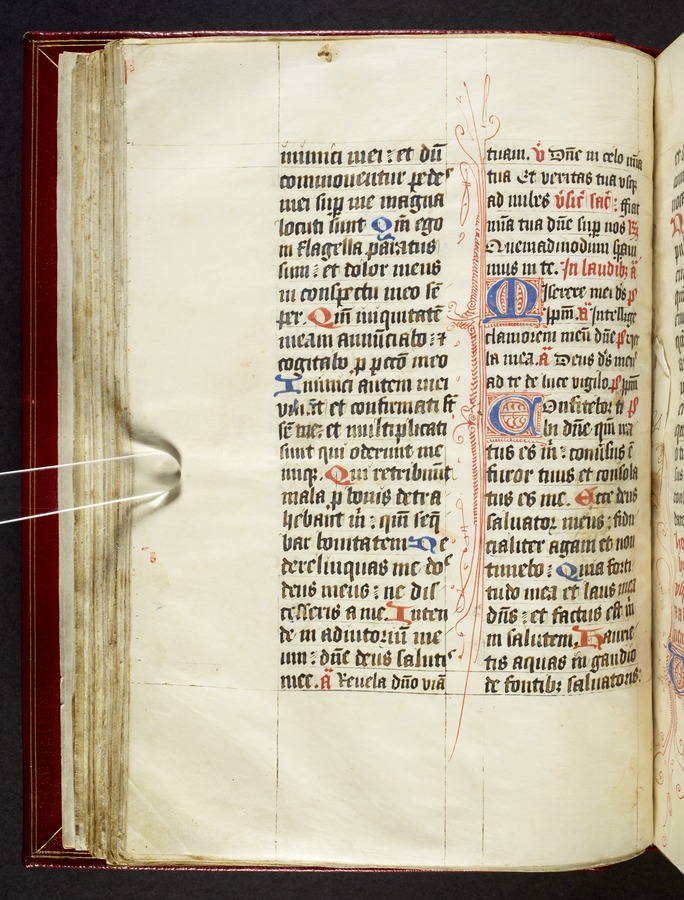 inimici mei : et dū
commouentur pedes
mei sup me magna
locuti sunt Qm̄ ego
in flagella paratus
sum : et dolor meus
in conspectu meo sē
per. Qm̄ iniquitatē
meam annūciabo : ⁊
cogitabo p pctō meo
Inimici autem mei
viuūt et confirmati st̄
sr̄ me : et multiplicati
sunt qui oderunt me
inique. Qui retribuūt
mala p bonis detra
hebant m̄ : qm̄ seq̄
bar bonitatem Ne
derelinquas me dn̄e
deus meus : ne dis
cesseris a me. Inten
de in adiutoriū me
um : dn̄e deus salutis
mee. A Reuela dn̄o viā
tuam. v̄ Dn̄e in celo mīa
tua Et veritas tua vsq̄
ad nubes v̄sic̄ sac̄ : ffiat
mīa tua dn̄e sup nos R
Quemadmodum spaui
mus in te. In laudib; ā
Miserere mei ds p̄
spm̄. A Intellige
clamorem meū dn̄e
la mea. A Deus ds meus
ad te de luce vigilo. ps
Confitebor ti p̄
bi dn̄e qm̄ ira
tus es m̄ : conuersus ē
furor tuus et consola
tus es me. Ecce deus
saluator meus : fidu
cialiter agam et non
timebo : Quia forti
tudo mea et laus mea
dn̄s : et factus est m̄
in salutem. Haurie
tis aquas in gaudio
de fontib; saluatoris :